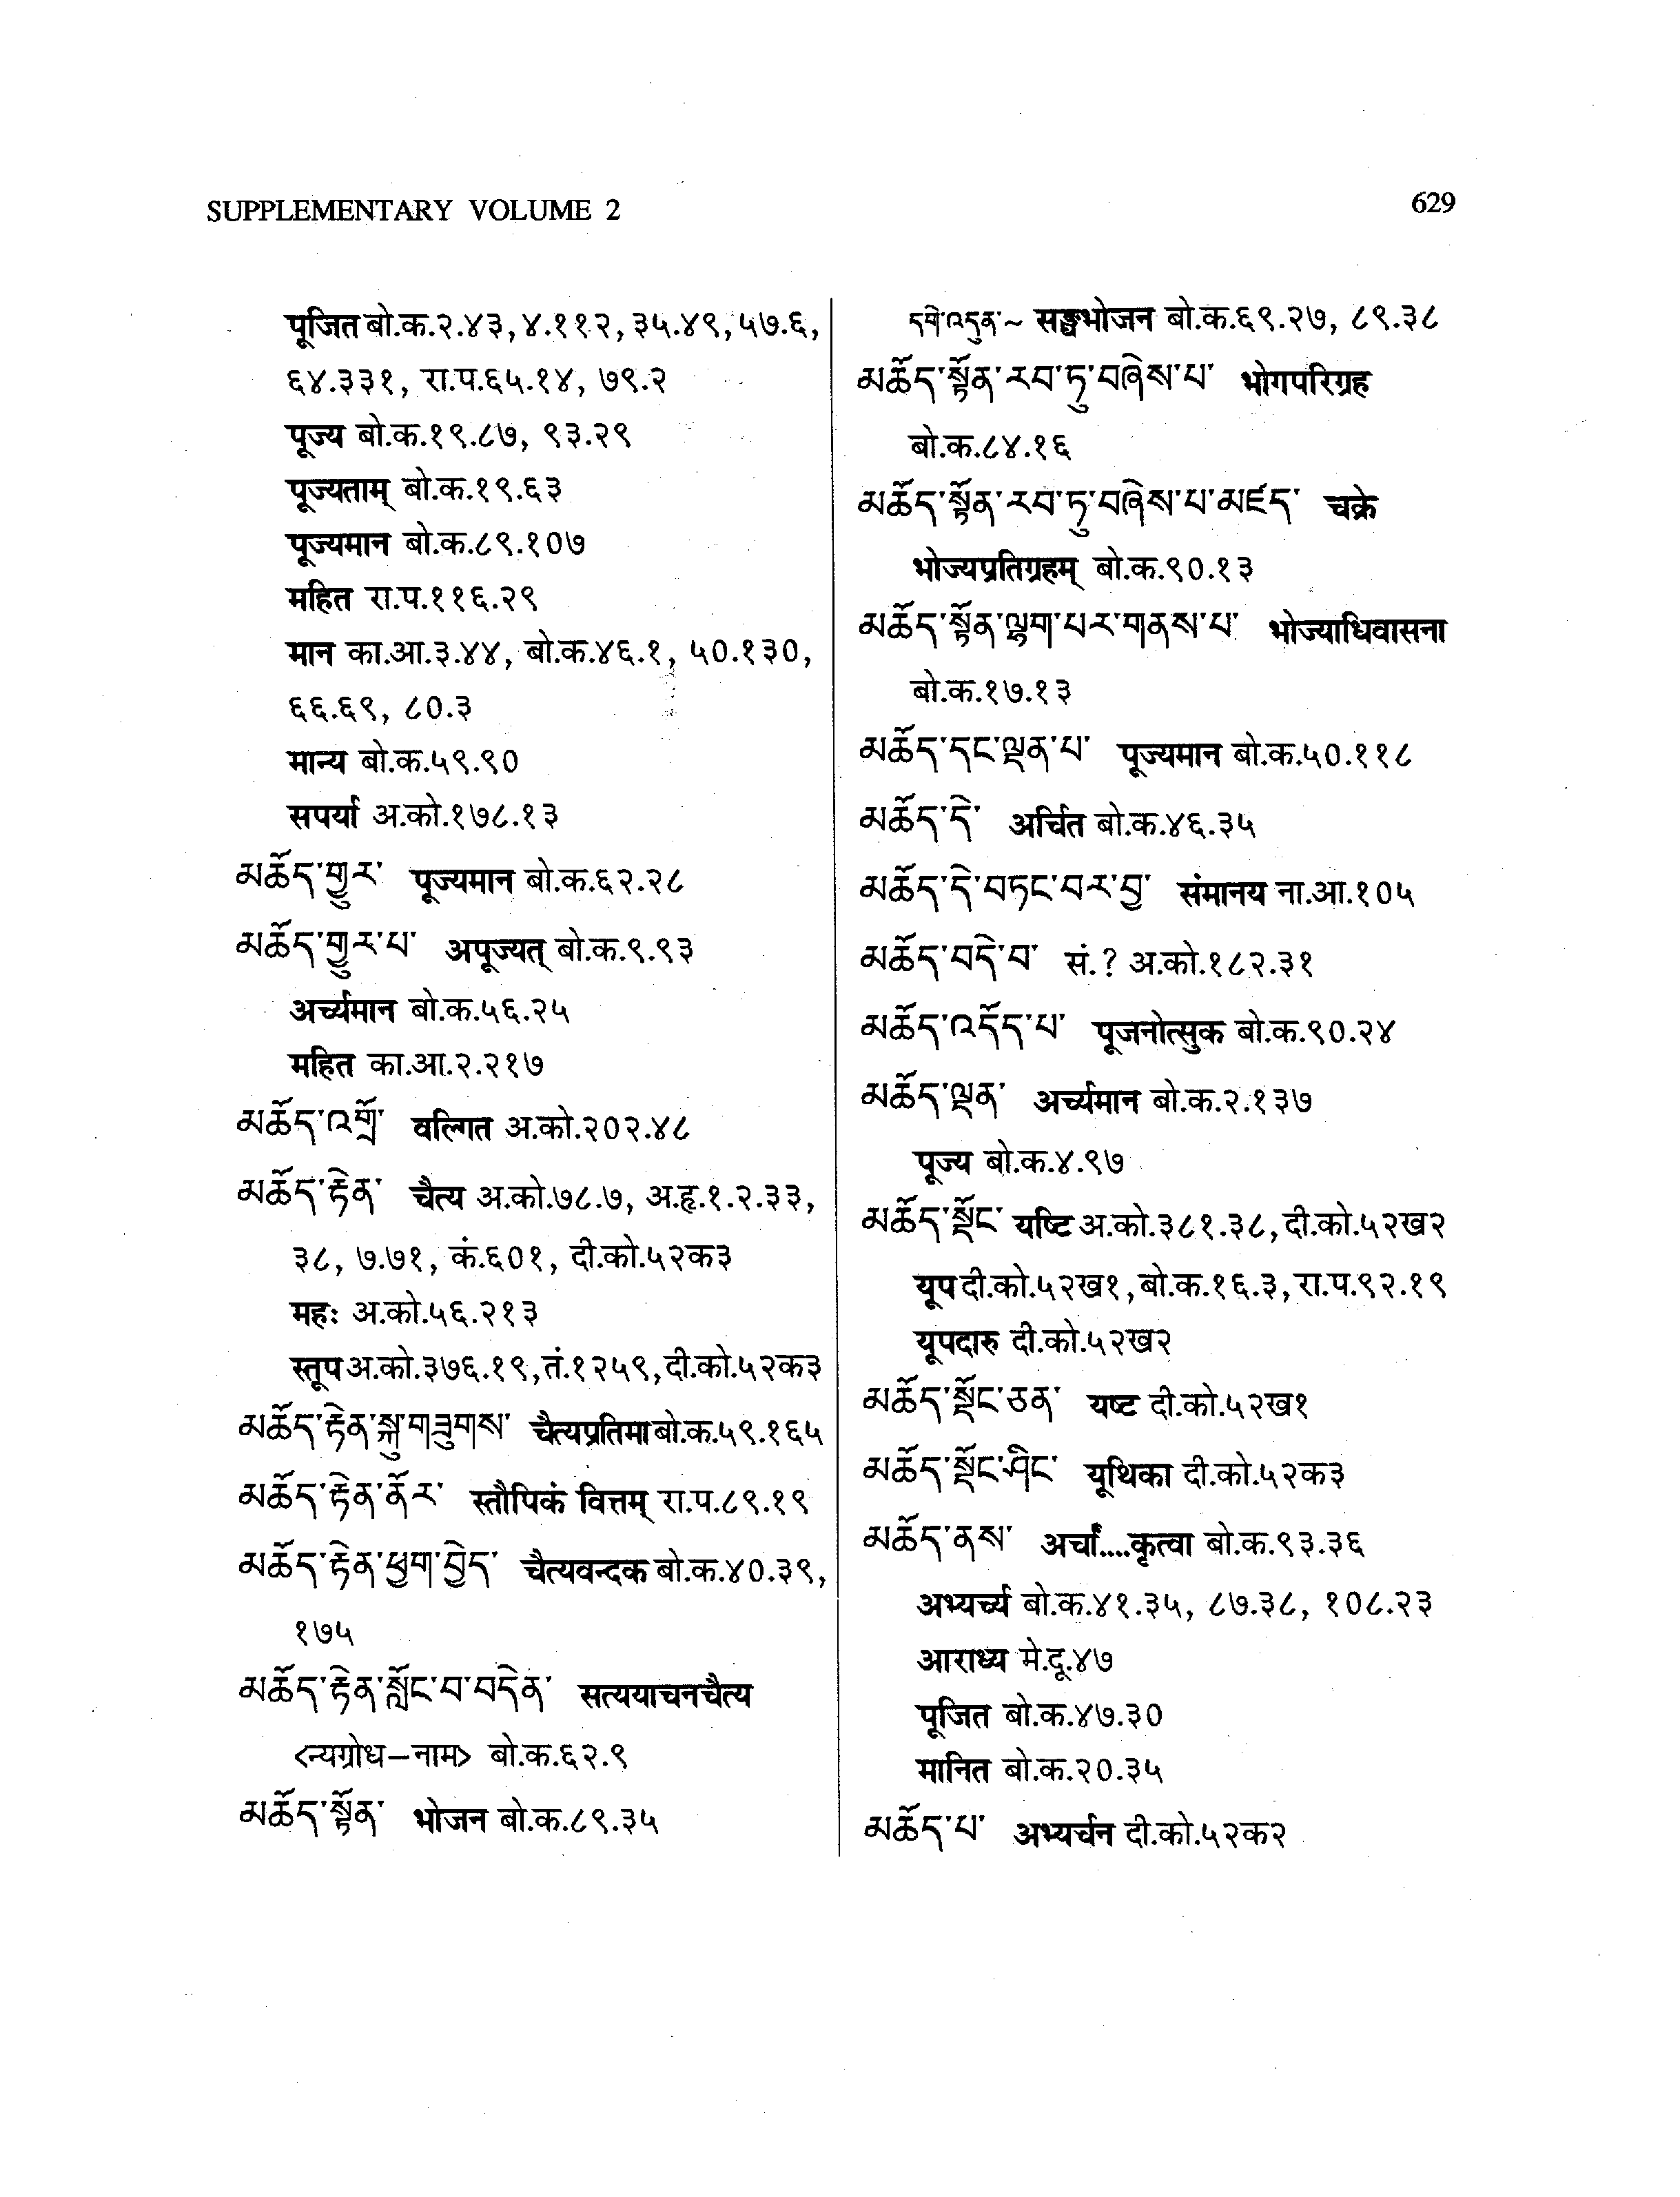 SUPPLEMENTARY VOLUME 2
629
पूजित बो.क.२.४३, ४.११२, ३५.४९, ५७.६,
६४.३३१, रा.प.६५.१४, ७९.२
पूज्य बो.क.१९.८७, ९३.२९
पूज्यताम् बो.क.१९.६३
पूज्यमान बो.क.८९.१०७
महित रा.प.११६.२९
मान का.आ.३.४४, बो.क.४६.१, ५०.१३०,
६६.६९, ८०.३
मान्य बो.क.५९.९०
सपर्या अ.को.१७८.१३
མཆོད་གྱུར་ पूज्यमान बो.क.६२.२८
མཆོད་གྱུར་པ་ अपूज्यत् बो.क.९.९३
अर्च्यमान बो.क.५६.२५
महित का.आ.२.२१७
མཆོད་འགྲོ་ वल्गित अ.को.२०२.४८
མཆོད་རྟེན་ चैत्य अ.को.७८.७, अ.हृ.१.२.३३,
३८, ७.७१, कं.६०१, दी.को.५२क३
महः अ.को.५६.२१३
स्तूप अ.को.३७६.१९, तं.१२५९, दी.को.५२क३
མཆོད་རྟེན་སྐུ་གཟུགས་ चैत्यप्रतिमा बो.क.५९.१६५
མཆོད་རྟེན་ནོར་ स्तौपिकं वित्तम् रा.प.८९.१९
མཆོད་རྟེན་ཕྱག་བྱེད་ चैत्यवन्दक बो.क.४०.३९,
१७५
མཆོད་རྟེན་སློང་བ་བདེན་ सत्ययाचनचैत्य
<न्यग्रोध–नाम> बो.क.६२.९
མཆོད་སྟོན་ भोजन बो.क.८९.३५
དགེ་འདུན་~ सङ्घभोजन बो.क.६९.२७, ८९.३८
མཆོད་སྟོན་རབ་ཏུ་བཞེས་པ་ भोगपरिग्रह
बो.क.८४.१६
མཆོད་སྟོན་རབ་ཏུ་བཞེས་པ་མཛད་ चक्रे
भोज्यप्रतिग्रहम् बो.क.९०.१३
མཆོད་སྟོན་ལྷག་པར་གནས་པ་ भोज्याधिवासना
बो.क.१७.१३
མཆོད་དང་ལྡན་པ་ पूज्यमान बो.क.५०.११८
མཆོད་དེ་ अर्चित बो.क.४६.३५
མཆོད་དེ་བཏང་བར་བྱ་ संमानय ना.आ.१०५
མཆོད་བདེ་བ་ सं.? अ.को.१८२.३१
མཆོད་འདོད་པ་ पूजनोत्सुक बो.क.९०.२४
མཆོད་ལྡན་ अर्च्यमान बो.क.२.१३७
पूज्य बो.क.४.९७
མཆོད་སྡོང་ यष्टि अ.को.३८१.३८, दी.को.५२ख२
यूप दी.को.५२ख१, बो.क.१६.३, रा.प.९२.१९
यूपदारु दी.को.५२ख२
མཆོད་སྡོང་ཅན་ यष्ट दी.को.५२ख१
མཆོད་སྡོང་ཤིང་ यूथिका दी.को.५२क३
མཆོད་ནས་ अर्चां....कृत्वा बो.क.९३.३६
अभ्यर्च्य बो.क.४१.३५, ८७.३८, १०८.२३
आराध्य मे.दू.४७
पूजित बो.क.४७.३०
मानित बो.क.२०.३५
མཆོད་པ་ अभ्यर्चन दी.को.५२क२